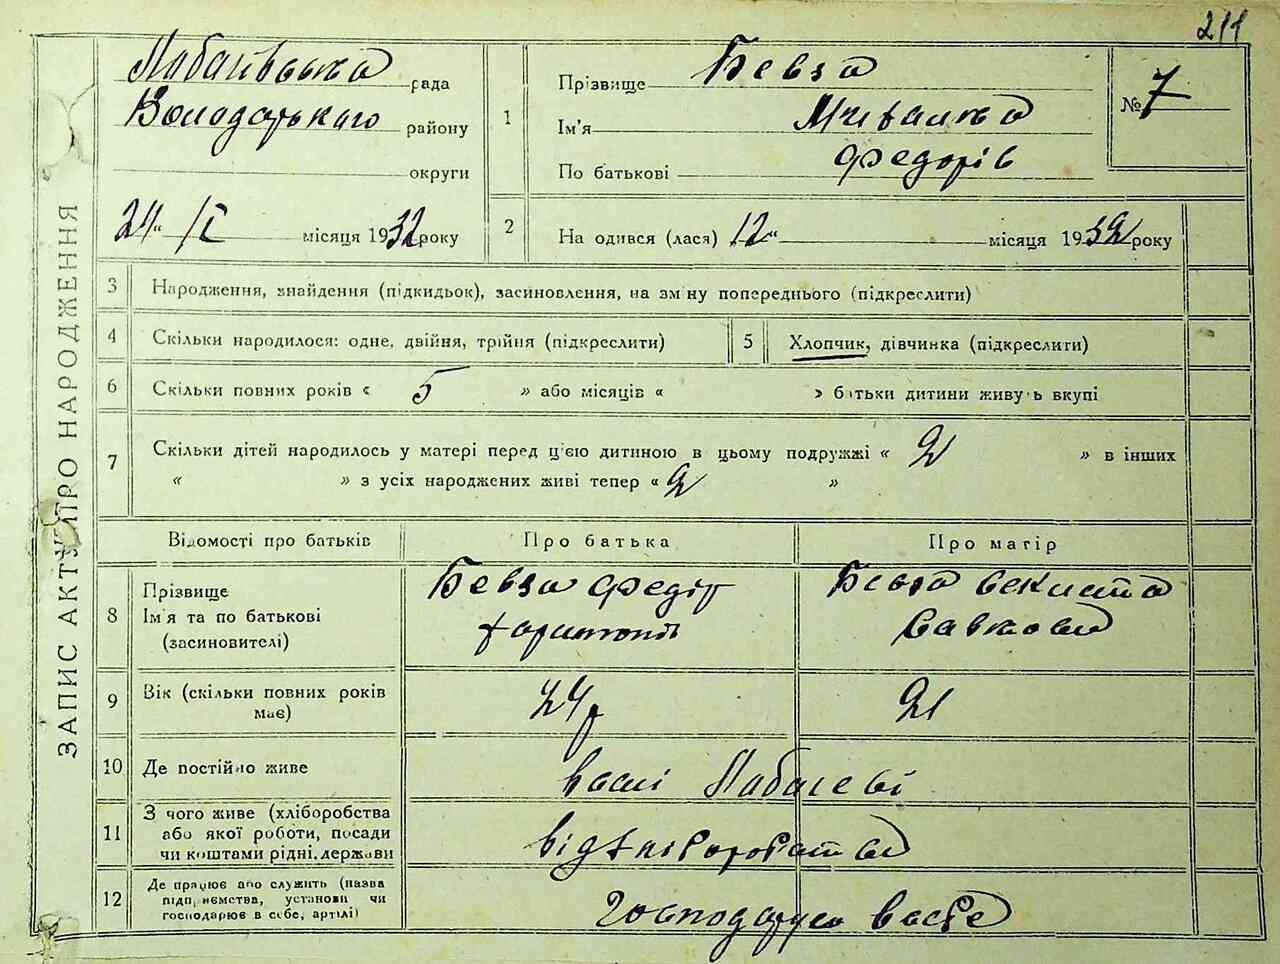 211
ЗАПИС АКТУ ПРО НАРОДЖЕННЯ
рада
Володарського району
округи
24" /I місяця 1932 року
1
Прізвище Бевза
Ім'я
По батькові Федорів
№ 7
2
На одився (лася) 12" місяця 1932 року
3 Народження, знайдення (підкидьок), засиновлення, на зм ну попереднього (підкреслити)
4 Скільки народилося: одне, двійня, трійня (підкреслити)
5 Хлопчик, дівчинка (підкреслити)
6 Скільки повних років « 5 » або місяців « » батьки дитини живуть вкупі
7 Скільки дітей народилось у матері перед ц'єю дитиною в цьому подружжі « 2 » в інших
« » з усіх народжених живі тепер « 2 »
Відомості про батьків Про батька Про матір
8 Прізвище
Ім'я та по батькові
(засиновителі)
Бевза Федір
Бевза
9 Вік (скільки повних років
має)
24р
21
10 Де постійно живе
в селі
11 З чого живе (хліборобства
або якої роботи, посади
чи коштами рідні, держави
від хліборобства
12 Де працює або служить (назва
підприємства, установи чи
господарює в себе, артілі)
Господарує в себе